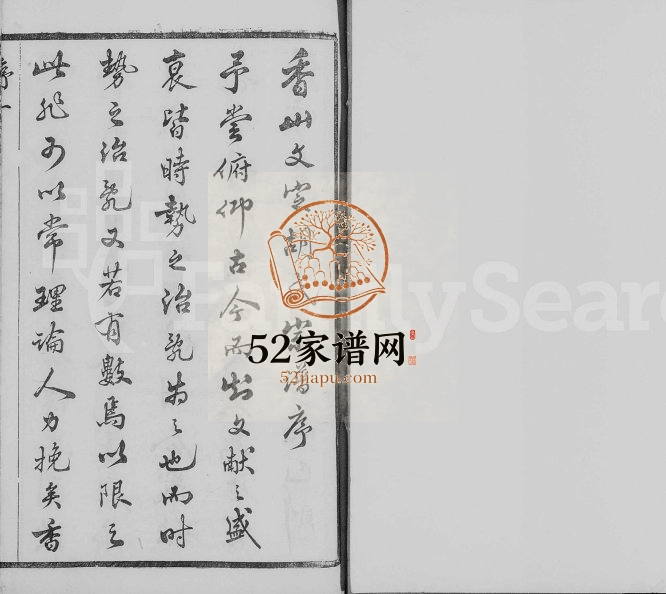 香山文定胡宗譜序
予嘗俯仰古今而知文献之盛
衰皆時勢之治乱為之也而时
勢之治乱又若有數焉以限之
此非可以常理論人力挽矣香
52家谱网
52jiapu.com
FamilySearc